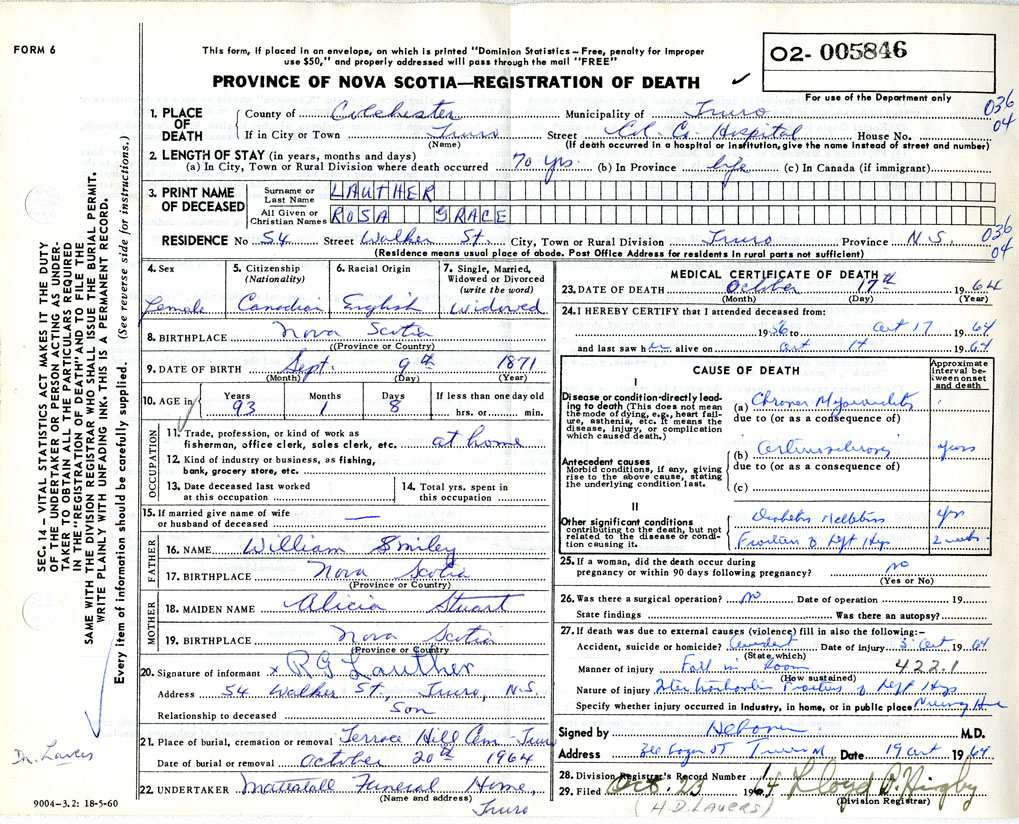 FORM 6
This form, if placed in an envelope, on which is printed "Dominion Statistics – Free, penalty for improper
use $50," and properly addressed will pass through the mail "FREE"
02- 005846
PROVINCE OF NOVA SCOTIA—REGISTRATION OF DEATH ✓
For use of the Department only
036
04
1. PLACE OF DEATH
County of Colchester Municipality of Truro
If in City or Town Truro Street Col. Co. Hospital House No.
(Name) (If death occurred in a hospital or institution, give the name instead of street and number)
2. LENGTH OF STAY (in years, months and days)
(a) In City, Town or Rural Division where death occurred 70 yrs. (b) In Province life (c) In Canada (if immigrant)
3. PRINT NAME OF DECEASED
Surname or Last Name LAUTHER
All Given or Christian Names ROSA GRACE
RESIDENCE No 54 Street Walker St. City, Town or Rural Division Truro Province N.S.
036
04
(Residence means usual place of abode. Post Office Address for residents in rural parts not sufficient)
4. Sex Female
5. Citizenship (Nationality) Canadian
6. Racial Origin English
7. Single, Married, Widowed or Divorced (write the word) Widowed
8. BIRTHPLACE Nova Scotia
(Province or Country)
9. DATE OF BIRTH Sept. 9th 1871
(Month) (Day) (Year)
10. AGE in Years 93 Months 1 Days 8 If less than one day old hrs. or min.
OCCUPATION
11. Trade, profession, or kind of work as
fisherman, office clerk, sales clerk, etc. at home
12. Kind of industry or business, as fishing,
bank, grocery store, etc.
13. Date deceased last worked
at this occupation
14. Total yrs. spent in
this occupation
15. If married give name of wife
or husband of deceased —
FATHER
16. NAME William Smiley
17. BIRTHPLACE Nova Scotia
(Province or Country)
MOTHER
18. MAIDEN NAME Alicia Stuart
19. BIRTHPLACE Nova Scotia
(Province or Country)
20. Signature of informant x R G Lauther
Address 54 Walker St., Truro, N.S.
Relationship to deceased Son
21. Place of burial, cremation or removal Terrace Hill Cem - Truro
Date of burial or removal October 20th 1964
22. UNDERTAKER Mattatall Funeral Home,
(Name and address) Truro
MEDICAL CERTIFICATE OF DEATH
23. DATE OF DEATH October 17th 1964
(Month) (Day) (Year)
24. I HEREBY CERTIFY that I attended deceased from:
1956 to Oct 17 1964
and last saw her alive on Oct 14 1964
CAUSE OF DEATH
Approximate interval between onset and death
I
Disease or condition directly leading to death (This does not mean
the mode of dying, e.g., heart failure, asthenia, etc. It means the
disease, injury, or complication
which caused death.)
(a) Chronic Myocarditis
due to (or as a consequence of)
Antecedent causes
Morbid conditions, if any, giving
rise to the above cause, stating
the underlying condition last.
(b) Arteriosclerosis years
due to (or as a consequence of)
(c)
II
Other significant conditions
contributing to the death, but not
related to the disease or condition causing it.
Diabetes Mellitus yrs
Fracture of Left Hip 2 weeks
25. If a woman, did the death occur during
pregnancy or within 90 days following pregnancy? no
(Yes or No)
26. Was there a surgical operation? no Date of operation 19
State findings Was there an autopsy?
27. If death was due to external causes (violence) fill in also the following:–
Accident, suicide or homicide? Accident Date of injury 3 Oct 1964
(State, which)
Manner of injury Fall in Room 422.1
(How sustained)
Nature of injury Intertrochanteric Fracture of Left Hip
Specify whether injury occurred in industry, in home, or in public place Nursing Home
Signed by M.D.
Address Truro Date 19 Oct 1964
28. Division Registrar's Record Number
29. Filed Oct. 23 1964 Lloyd
(Division Registrar)
(H.D. LAVERS)
SEC. 14 – VITAL STATISTICS ACT MAKES IT THE DUTY
OF THE UNDERTAKER OR PERSON ACTING AS UNDERTAKER TO OBTAIN ALL THE PARTICULARS REQUIRED
IN THE "REGISTRATION OF DEATH" AND TO FILE THE
SAME WITH THE DIVISION REGISTRAR WHO SHALL ISSUE THE BURIAL PERMIT.
WRITE PLAINLY WITH UNFADING INK. THIS IS A PERMANENT RECORD.
Every item of information should be carefully supplied. (See reverse side for instructions.)
Dr. Lavers
9004-3.2: 18-5-60